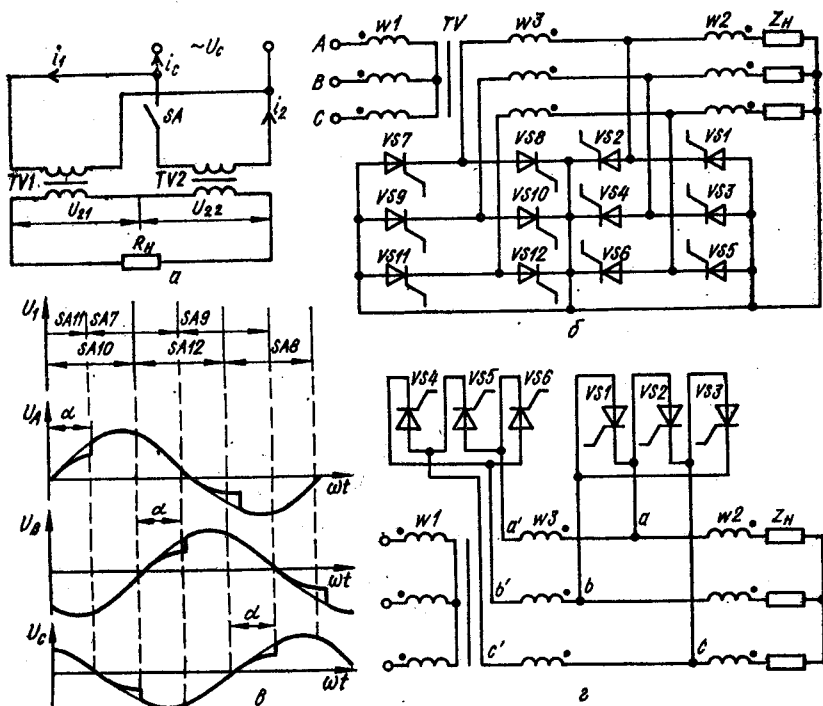 ~Uс
i1
iс
SA
i2
TV1
TV2
U21
U22
Rн
а
A
B
C
w1
TV
w3
w2
Zн
VS7
VS8
VS2
VS1
VS9
VS10
VS4
VS3
VS11
VS12
VS6
VS5
б
U1
SA11
SA7
SA9
SA10
SA12
SA8
UA
α
ωt
UB
α
ωt
UC
α
ωt
в
VS4
VS5
VS6
VS1
VS2
VS3
w1
a'
w3
a
w2
Zн
b'
b
c'
c
г